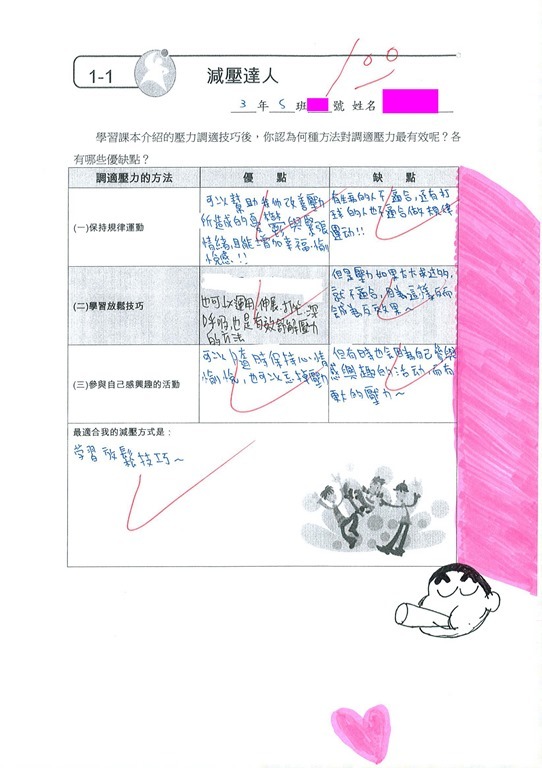 100
1-1 減壓達人
3 年 5 班 號 姓名
學習課本介紹的壓力調適技巧後，你認為何種方法對調適壓力最有效呢？各
有哪些優缺點？
調適壓力的方法 優 點 缺 點
(一)保持規律運動
可以幫助我們改善壓力
所造成的憂鬱與緊張
情緒,且能增加幸福、愉
悅感!!
的人不適合,還有打
球的人也不適合做規律
運動!!
(二)學習放鬆技巧
也可以運用伸展、打坐、深
呼吸,也是有效舒解壓力
的方法
但是壓力如果太大來送的,
就不適合,因為這樣反而
成為反效果~
(三)參與自己感興趣的活動
可以隨時保持心情
愉悅,也可以忘掉壓力
但有時也會因為自己參與
感興趣的活動而有
點的壓力~
最適合我的減壓方式是：
學習放鬆技巧~